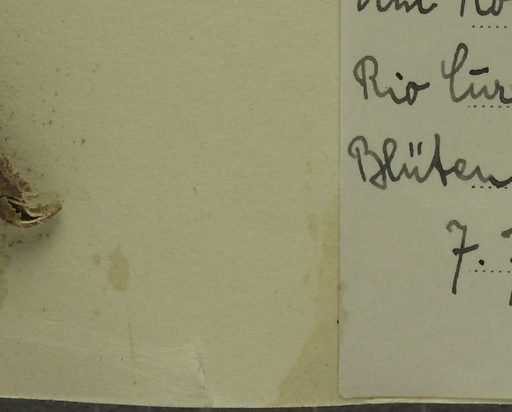 Rio Cur
Blüten
7.